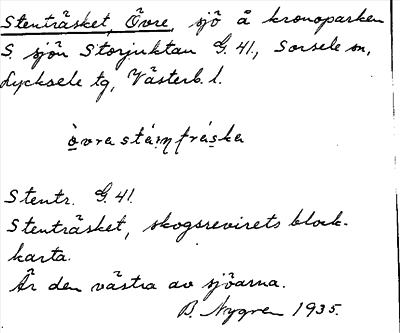 Stenträsket, Övre, sjö å kronoparken
S. sjön Storjuktan G. 41, Sorsele sn,
Lycksele tg, Västerb. l.
òvra stáiŋtráska
Stentr. G. 41.
Stenträsket, skogsrevirets block-
karta.
Är den västra av sjöarna.
B. Nygren 1935.